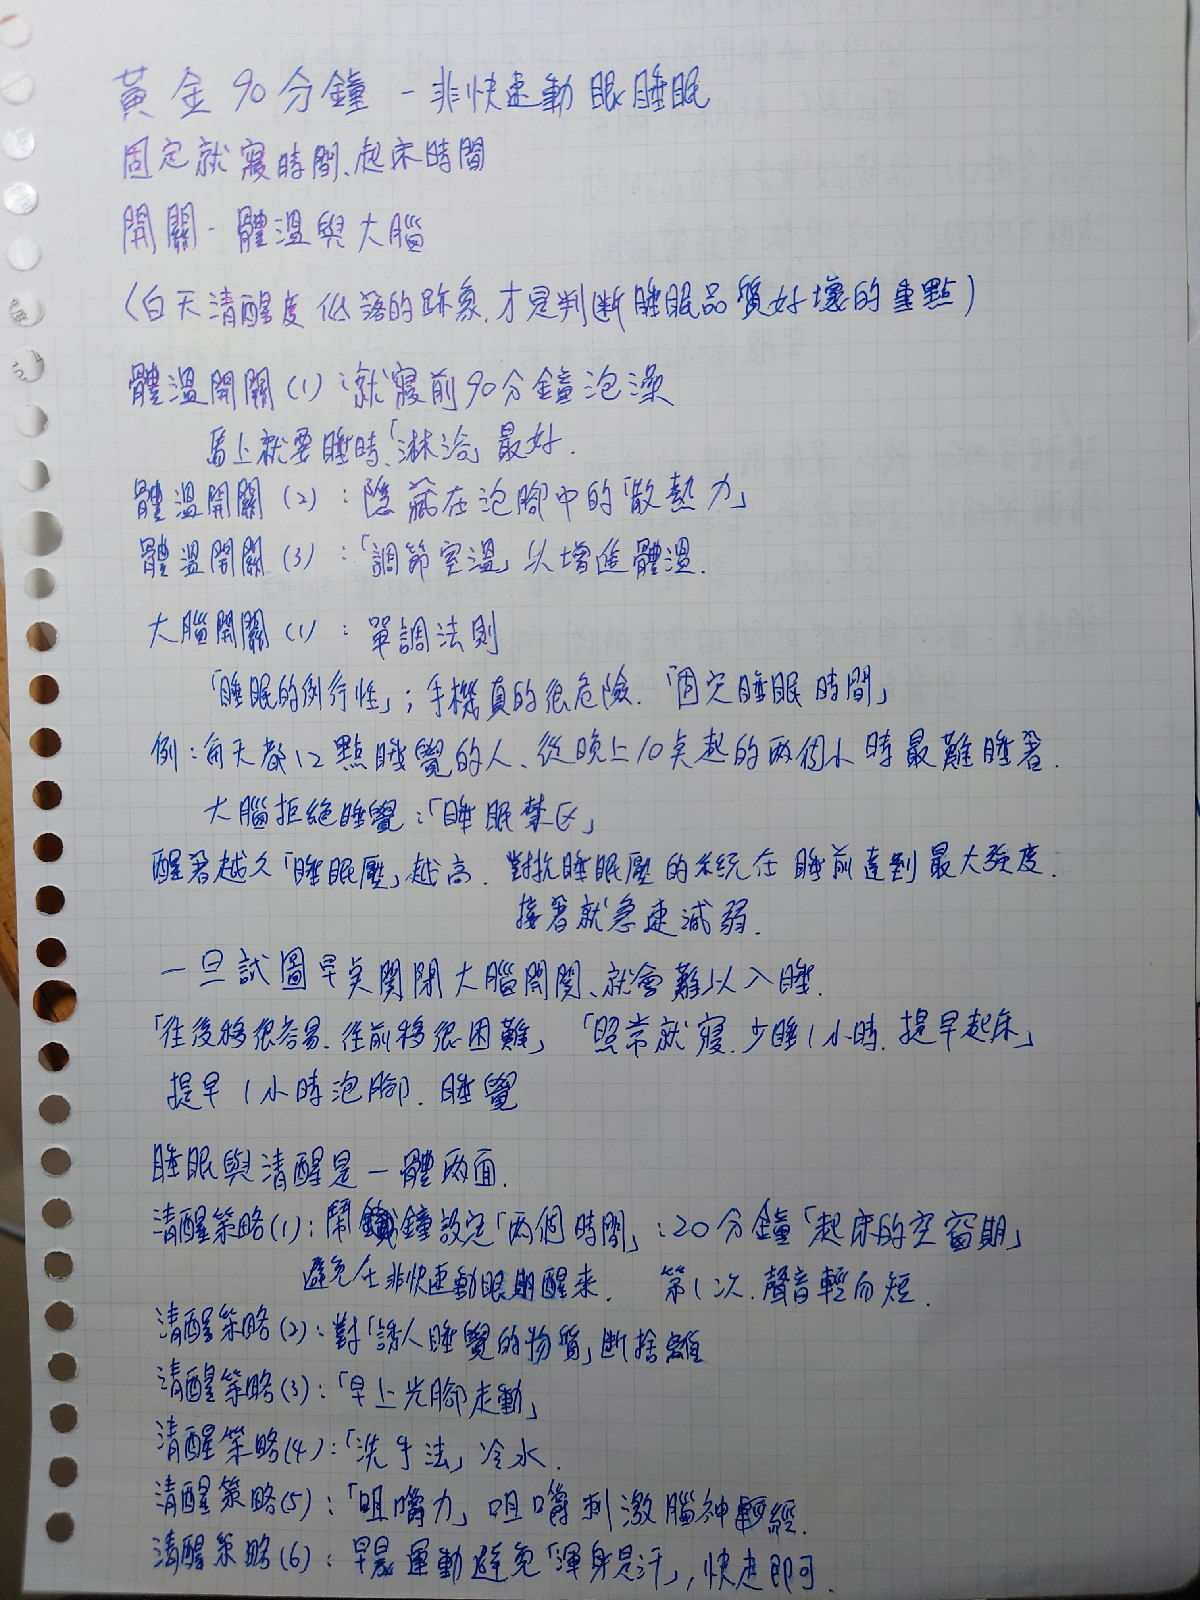 黃金90分鐘－非快速動眼睡眠
固定就寢時間、起床時間
開關－體溫與大腦
(白天清醒度低落的跡象,才是判斷睡眠品質好壞的重點)
體溫開關(1):就寢前90分鐘泡澡
馬上就要睡時、「淋浴」最好.
體溫開關(2):隱藏在泡腳中的「散熱力」
體溫開關(3):「調節室溫」以增進體溫.
大腦開關(1):單調法則
「睡眠的例行性」;手機真的很危險.「固定睡眠時間」
例:每天都12點睡覺的人、從晚上10点起的兩個小時最難睡著.
大腦拒絕睡覺:「睡眠禁区」
醒著越久「睡眠壓」越高.對抗睡眠壓的系統在睡前達到最大強度.
接著就急速減弱.
一旦試圖早点關閉大腦開關、就會難以入睡.
「往後移很容易、往前移很困難」「照常就寢.少睡1小時.提早起床」
提早1小時泡腳.睡覺
睡眠與清醒是一體兩面.
清醒策略(1):鬧鐘設定「兩個時間」:20分鐘「起床的空窗期」
避免在非快速動眼期醒來. 第1次.聲音輕而短.
清醒策略(2):對「誘人睡覺的物質」斷捨離
清醒策略(3):「早上光腳走動」
清醒策略(4):「洗手法」冷水.
清醒策略(5):「咀嚼力」咀嚼刺激腦神經.
清醒策略(6):早晨運動避免「渾身是汗」,快走即可.